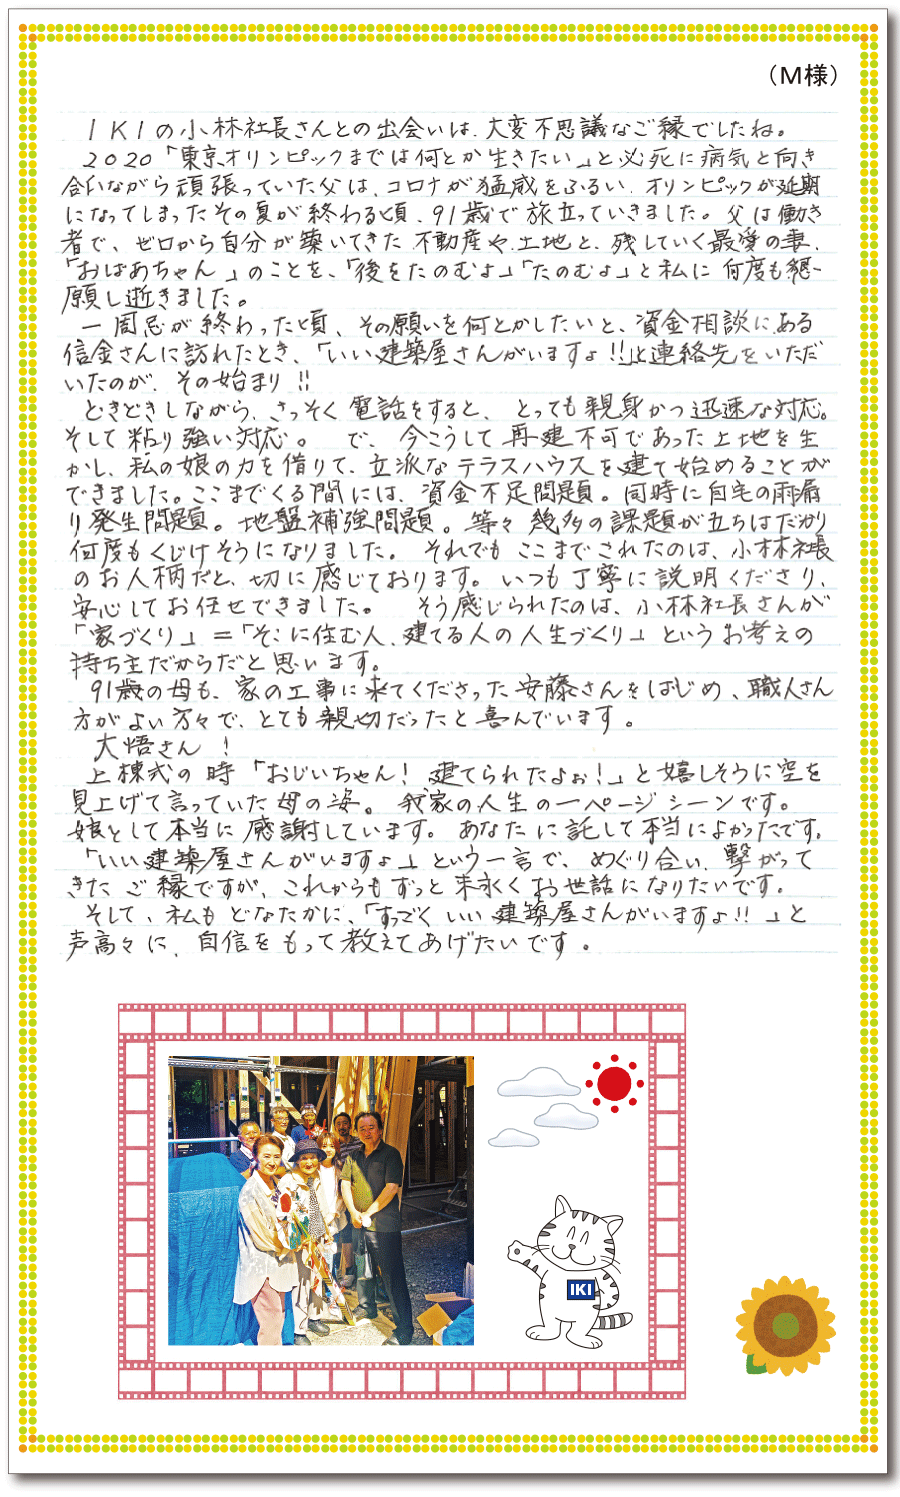 （M様）
IKIの小林社長さんとの出会いは、大変不思議なご縁でしたね。
2020「東京オリンピックまでは何とか生きたい」と必死に病気と向き
合いながら頑張っていた父は、コロナが猛威をふるい、オリンピックが延期
になってしまったその夏が終わる頃、91歳で旅立っていきました。父は働き
者で、ゼロから自分が築いてきた不動産や土地と、残していく最愛の妻、
「おばあちゃん」のことを、「後をたのむよ」「たのむよ」と私に何度も懇
願し逝きました。
一周忌が終わった頃、その願いを何とかしたいと、資金相談にある
信金さんに訪れたとき、「いい建築屋さんがいますよ!!」と連絡先をいただ
いたのが、その始まり!!
ときどきしながら、さっそく電話をすると、とっても親身かつ迅速な対応。
そして粘り強い対応。で、今こうして再建不可であった土地を生
かし、私の娘の力を借りて、立派なテラスハウスを建て始めることが
できました。ここまでくる間には、資金不足問題。同時に自宅の雨漏
り発生問題。地盤補強問題。等々幾多の課題が立ちはだかり
何度もくじけそうになりました。それでもここまでこれたのは、小林社長
のお人柄だと、切に感じております。いつも丁寧に説明くださり、
安心してお任せできました。そう感じられたのは、小林社長さんが
「家づくり」＝「そこに住む人、建てる人の人生づくり」というお考えの
持ち主だからだと思います。
91歳の母も、家の工事に来てくださった安藤さんをはじめ、職人さん
方がよい方々で、とても親切だったと喜んでいます。
大悟さん！
上棟式の時「おじいちゃん！建てられたよぉ！」と嬉しそうに空を
見上げて言っていた母の姿。我家の人生の一ページシーンです。
娘として本当に感謝しています。あなたに託して本当によかったです。
「いい建築屋さんがいますよ」という一言で、めぐり合い、繋がって
きたご縁ですが、これからもずっと末永くお世話になりたいです。
そして、私もどなたかに、「すっごくいい建築屋さんがいますよ!!」と
声高々に、自信をもって教えてあげたいです。
IKI